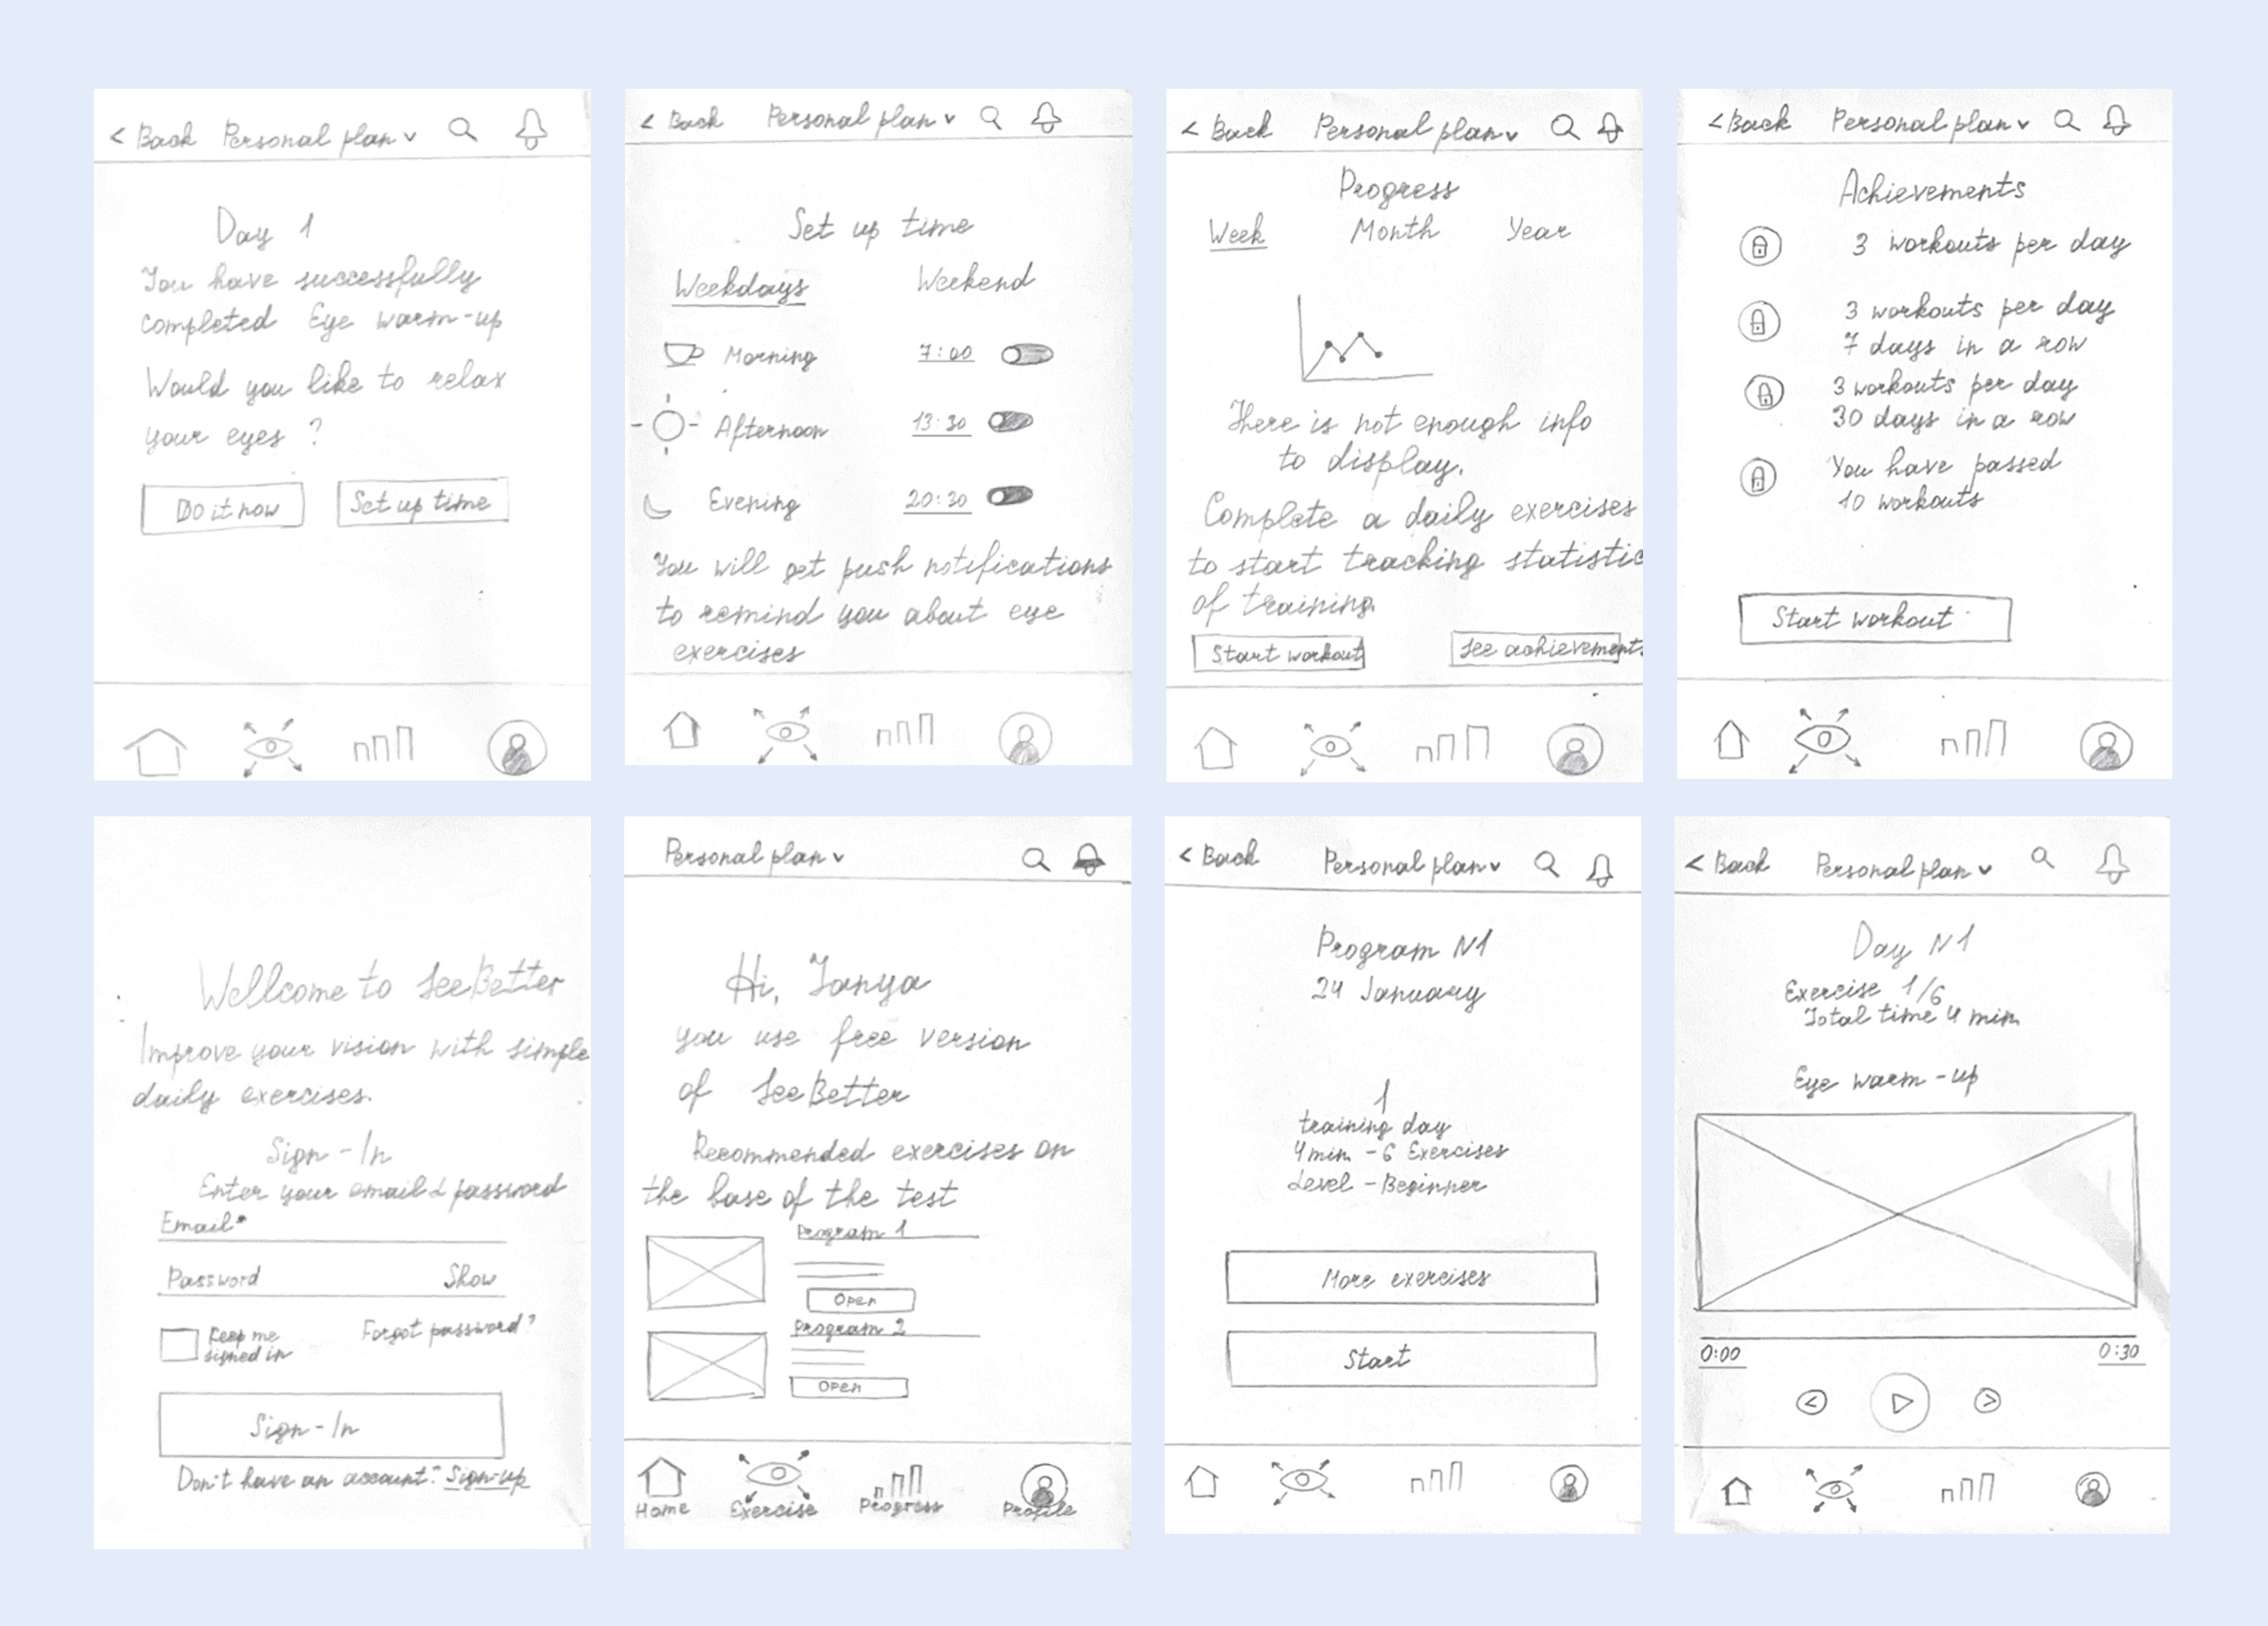 < Back Personal plan
Day 1
You have successfully
completed Eye warm-up
Would you like to relax
your eyes ?
Do it now Set up time
< Back Personal plan
Set up time
Weekdays Weekend
Morning 7:00
Afternoon 13:30
Evening 20:30
You will get push notifications
to remind you about eye
exercises
< Back Personal plan
Progress
Week Month Year
There is not enough info
to display.
Complete a daily exercises
to start tracking statistic
of training.
Start workout See achievement
< Back Personal plan
Achievements
3 workouts per day
3 workouts per day
7 days in a row
3 workouts per day
30 days in a row
You have passed
10 workouts
Start workout
Wellcome to SeeBetter
Improve your vision with simple
daily exercises.
Sign-In
Enter your email & password
Email*
Password Show
Keep me
signed in
Forgot password?
Sign-In
Don't have an account? Sign-up
Personal plan
Hi, Tanya
you use free version
of SeeBetter
Recommended exercises on
the base of the test
Program 1
Open
Program 2
Open
Home Exercise Progress Profile
< Back Personal plan
Program N1
24 January
1
training day
4 min - 6 Exercises
Level - Beginner
More exercises
Start
< Back Personal plan
Day N1
Exercise 1/6
Total time 4 min
Eye warm-up
0:00 0:30